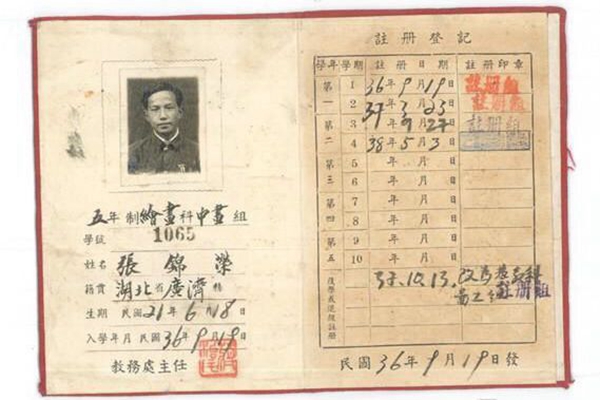 五年制繪畫科中畫組
學號 1065
姓名 張錦榮
籍貫 湖北省廣濟縣
生期 民國21年6月18日
入學年月 民國36年9月19日
教務處主任
註冊登記
學年 學期 註冊日期 註冊印章
第一 1 36年9月19日 註冊組
2 37年3月23日 註冊組
第二 3 37年9月27日 註冊組
4 38年5月3日
第三 5 年月日
6 年月日
第四 7 年月日
8 年月日
第五 9 年月日
10 年月日
10.13. 改為 科
註冊組
民國36年9月19日發